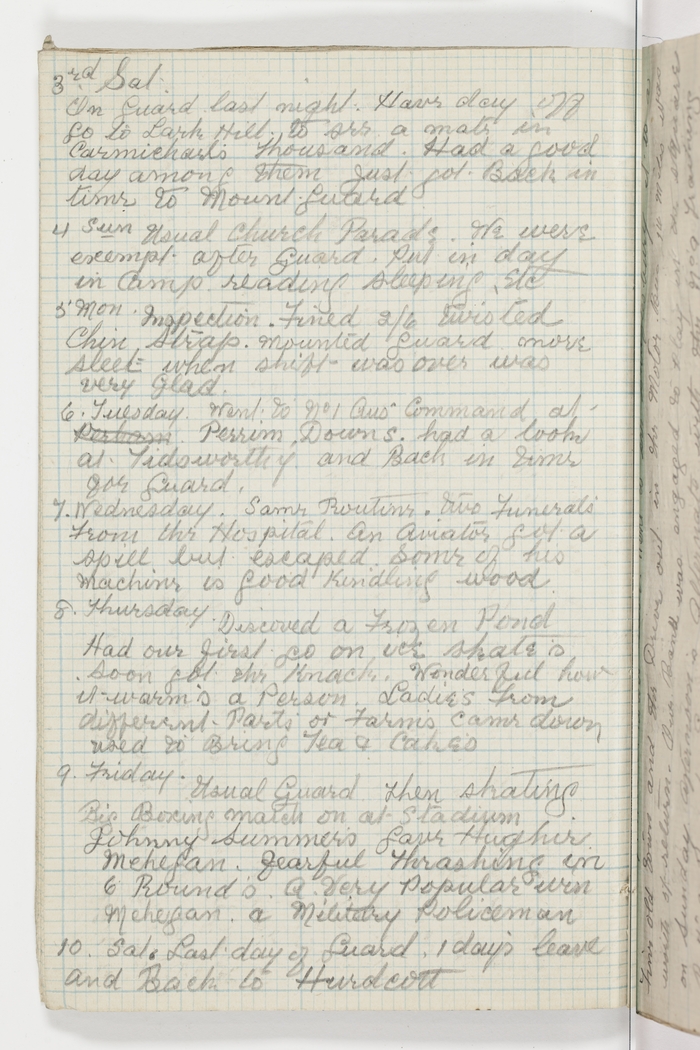 3rd Sat.
On Guard last night. Have day off
Go to Lark Hill. to see a mate in
Carmichaels Thousand. Had a good
day among them just got Back in
time to Mount Guard
4 Sun Usual Church Parade. We were
exempt after Guard. Put in day
in Camp reading sleeping Etc
5 Mon. Inspection. Fined 2/6 twisted
Chin Strap. Mounted Guard more
sleet when shift was over was
very Glad.
6. Tuesday. Went to No 1 Aus Command at
Perrim Downs. had a look
at Tidsworthy and Back in time
for Guard.
7. Wednesday. Same Routine. two Funerals
from the Hospital. An Aviator got a
spill but escaped Some of his
machine is good Kindling wood
8. Thursday. Discoved a Frozen Pond
Had our first go on ice skate's
Soon got the Knack. Wonderful how
it warm's a Person. Ladies from
different Parts or Farms came down
used to Bring Tea & Cakes
9. Friday.
Usual Guard then skating
Big Boxing match on at Stadium
Johnny Summers gave Hughie
Mehegan. fearful Thrashing in
6 Round's. a Very Popular win
Mehegan. a Military Policeman
10. Sat. Last day of Guard. 1 days leave
and Back to Hurdcott